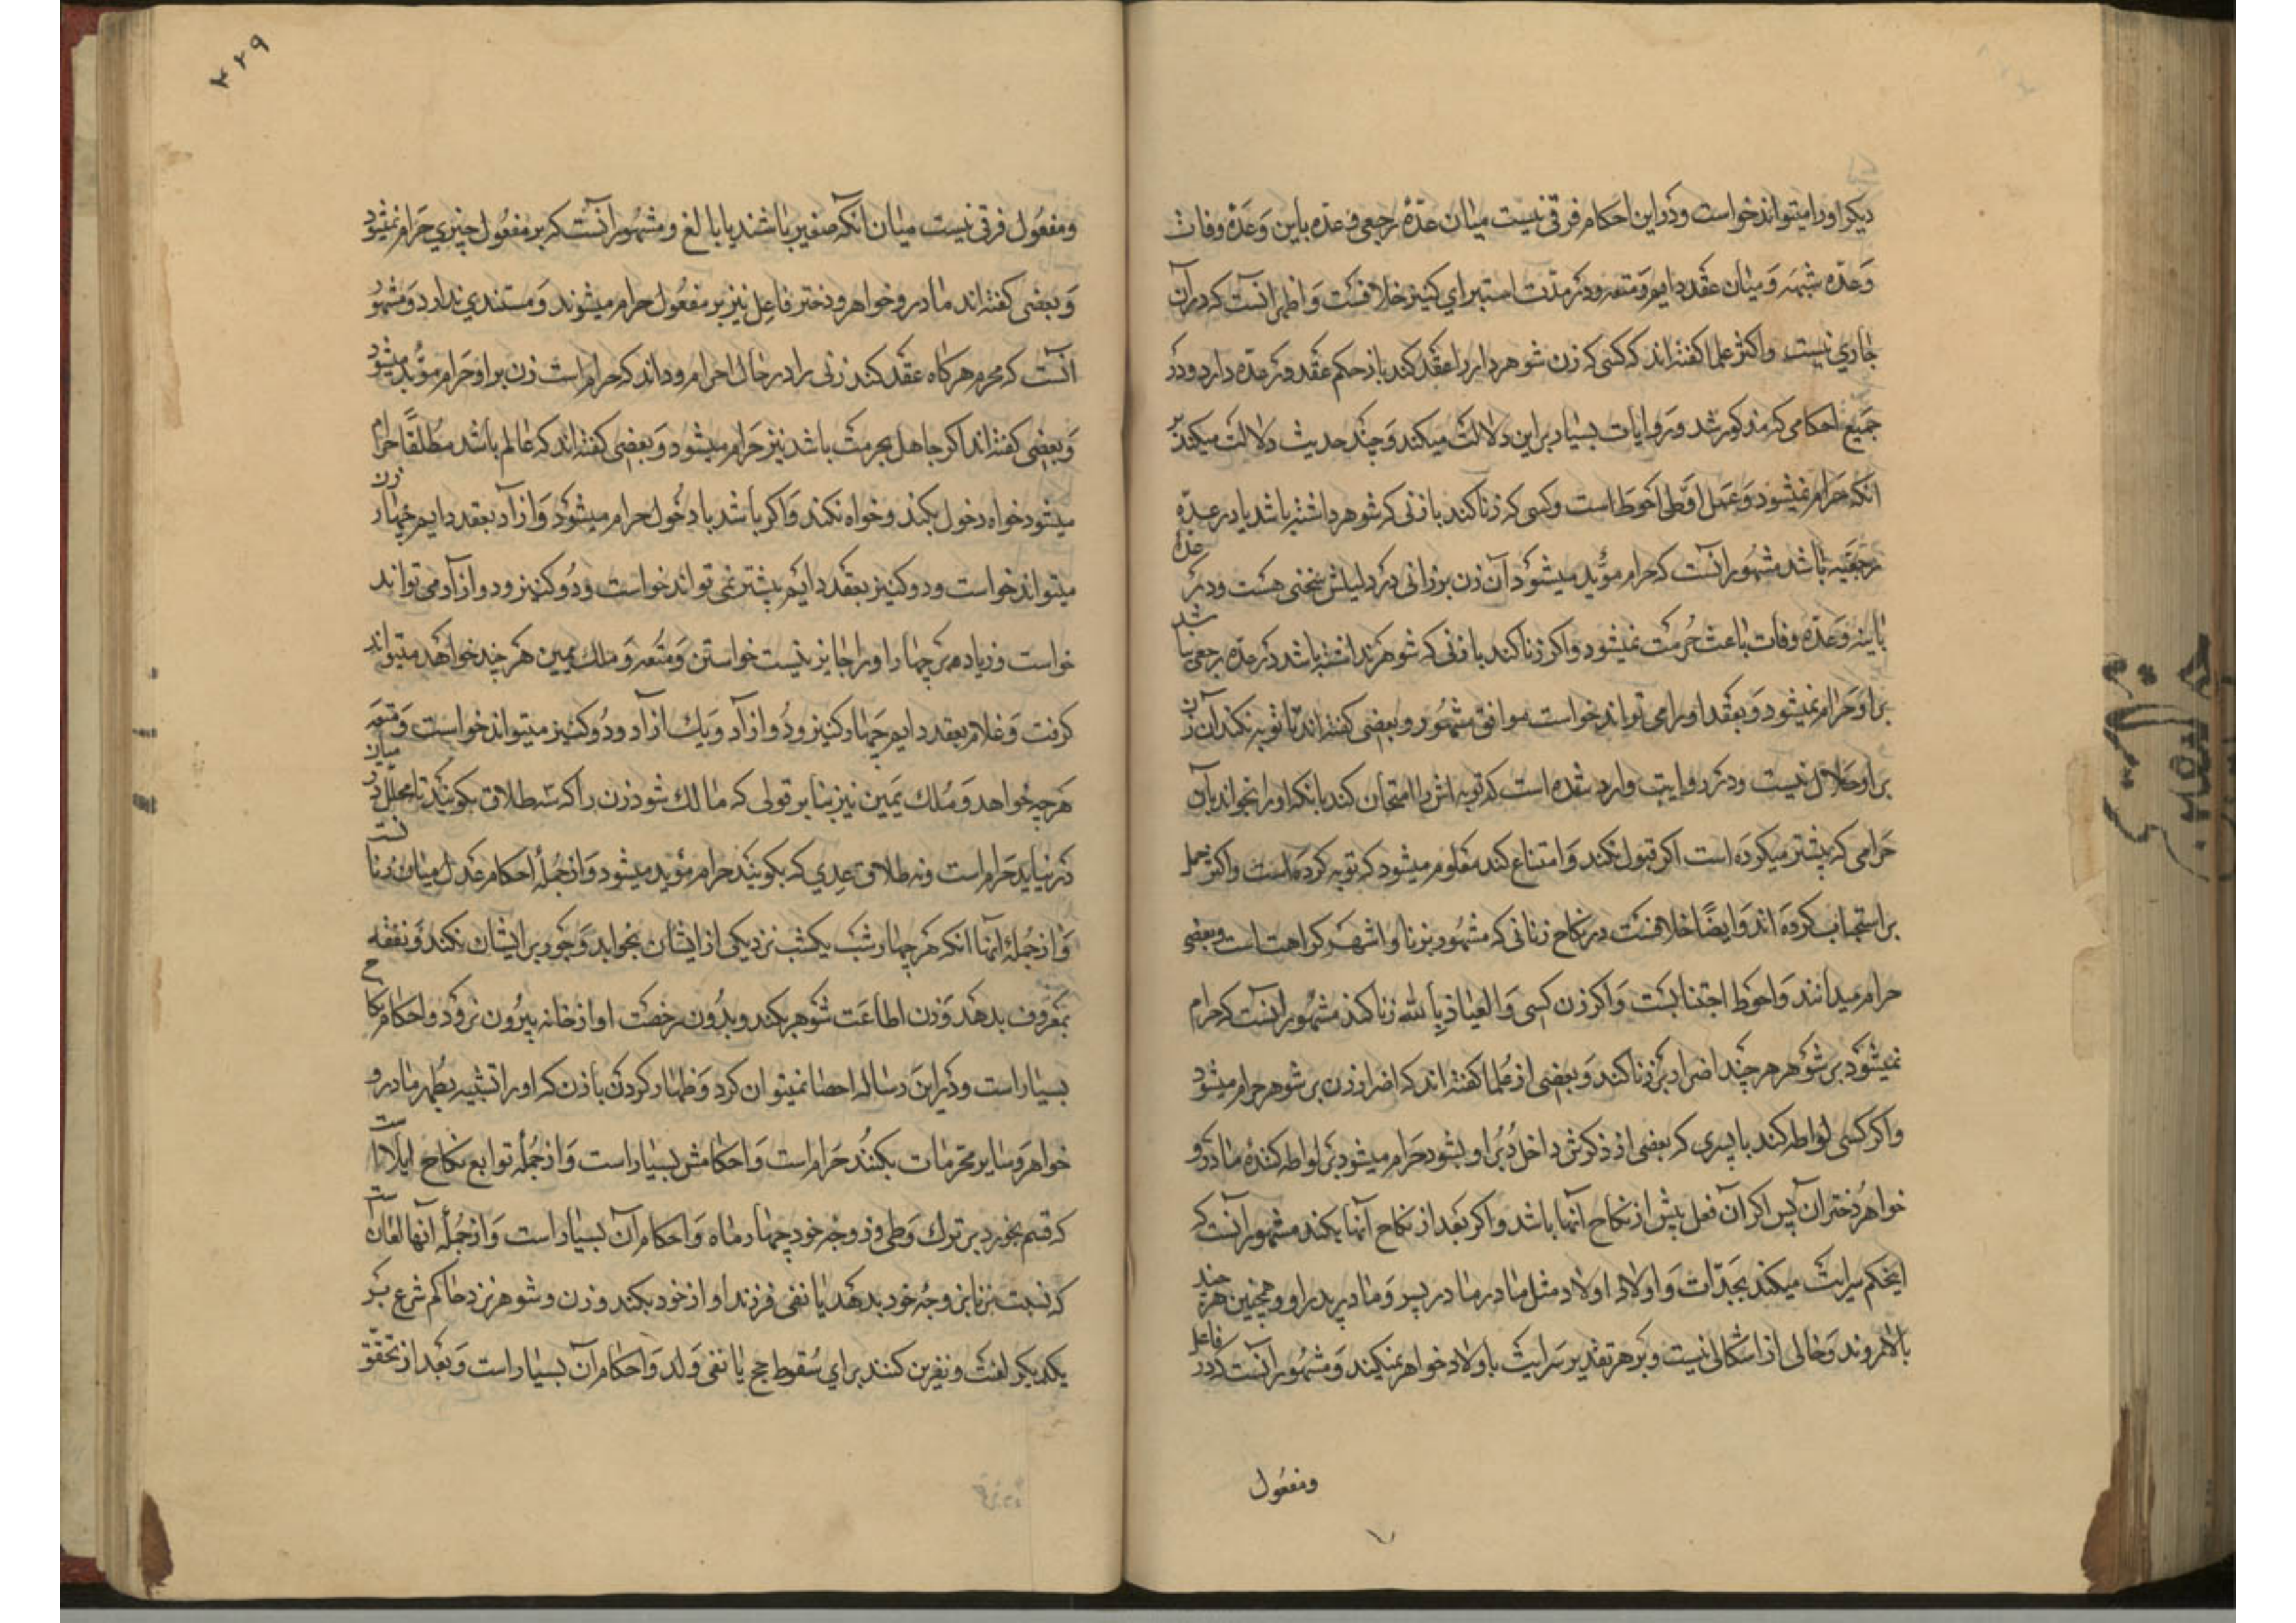 دیکر اورا میتواند خواست و در این احکام فرقی نیست میان عدّهٔ رجعی و عدّه باین وَعدّهٔ وفات
وَعدّه شبهه وَمیان عقد دایم وَمتعه و در مدّت استبرای کنیز خلافست وَاظهر آنست که در آن
جاری نیست واکثر علما کفته‌اند که کسی که زن شوهر دار را عقد کند باز حکم عقد در عدّه دارد و در
جَمیع احکامی که مذکور شد وَروایات بسیار بر این دلالت میکند وَچند حدیث دلالت میکند بر
آنکه حَرام نمیشود وَعمل اوّلی احوَط است وکسی که زنا کند بازنی که شوهر داشته باشد یا در عدّه
رجعیّه باشد مشهور آنست که حرام مؤبد میشود آن زن بر زانی در دلیلش سخنی هست ودر عدّهٔ
باینه وَعدّه وفات باعث حُرمت نمیشود واکر زنا کند بازنی که شوهر نداشته باشد در عدّه رجعی نباشد
بر او حَرام نمیشود وَبعقد اورا می تواند خواست موافق مشهور وبعضی کفته‌اند تا توبه نکند آن زن
بر او حَلال نیست ودر روایت وارد شده است که توبه اش را امتحان کند بانکه او را بخواند بآن
حَرامی که پیشتر میکرده است اکر قبول نکند وَامتناع کند معلوم میشود که توبه کرده است واکثر حمل
بر استحباب کرده‌اند وَایضًا خلافست در نکاح زنانی که مشهور بزنا و اشهر کراهت است وبعضی
حرام میدانند وَاحوط اجتنابست وَاکر زن کسی وَالعیاذ بِالله زنا کند مشهور آنست که حرام
نمیشود بر شوهر هر چند اصرار بر زنا کند وَبعضی از علما کفته‌اند که اصرار زن بر شوهر حرام میشود
واکر کسی لواطه کند با پسری که بعضی از ذکرش داخل دُبر او بشود حَرام میشود بر لواطه کننده مادر و
خواهر و دختر آن پسر اکر آن فعل پیش از نکاح آنها باشد و اکر بعد از نکاح آنها بکند مشهور آنست که
اینحکم سرایت میکند بجَدّات وَاولاد اولاد مثل مادر مادر پسر وَمادر پدر او وهمچنین هر چند
بالا روند وَخالی از اشکالی نیست وبر هر تقدیر سَرایت باولاد خواهر نمیکند وَمشهور آنست که در فاعل
ومفعُول
۴۲۹
ومفعُول فرقی نیست میان آنکه صغیر باشند یا بالغ ومشهور آنست که بر مفعُول چیزی حَرام نمیشود
وَبعضی کفته‌اند مادر و خواهر و دختر فاعِل نیز بر مفعُول حرام میشوند وَمستندی ندارد وَمشهُور
آنست که محرم هرکاه عقد کند زنی را در حال احرام و داند که حرام است زن بر او حَرام مؤبد میشود
وَبعضی کفته‌اند اکر جاهل بحرمت باشد نیز حَرام میشود وَبعضی کفته‌اند که عالم باشد مطلقًا حرام
میشود خواه دخول بکند وخواه نکند وَاکر باشد با دخُول حرام میشود وَازآد بعقد دایم چهار زن
میتواند خواست و دو کنیز بعقد دایم بیشتر نمی تواند خواست ودُو کنیز و دو ازآد می تواند
خواست و زیاده بر چهار اورا جایز نیست خواستن وَمتُعه وَملك یمین هر چند خواهد میتواند
کرفت وَغلام بعقد دایم چَهار کنیز ودُو ازآد وَیك ازآد ودُو کنیز میتواند خواست وَمتعه
هرچه خواهد وَمُلك یَمین نیز بنا بر قولی که مالك شود زن را که سه طلاق بکویند تا محلّل در میان
در نیاید حَرام است ونه طلاق عِدی که بکویند حرام مؤبد میشود وَازجُملهٔ احکام عَدل میان زنانست
وَازجُملهٔ آنها آنکه هر چهار شب یکشب نزد یکی از ایشان بخوابد وَجَور بر ایشان نکند وَنفقه
بمعروف بدهد وَزن اطاعَت شوهر بکند وبدُون رخصت او از خانه بیرُون نرود واحکام نکاح
بسیار است ودر این رساله احصا نمیتوان کرد وَظهار کردن بازن که اورا تشبیه بظهر مادر و
خواهر وَسایر محرّمات بکنند حَرام است وَاحکامش بسیار است وَازجُمله توابع نکاح ایلا است
که قسم بخورد بر ترك وَطی زوجه خود چهار ماه وَاحکام آن بسیار است وَازجُمله آنها لعان است
که نسبت زنا بزوجُه خود بدهد یا نفی فرزند او از خود بکند وزن و شوهر نزد حاکم شرع بر
یکدیکر لعنت ونفرین کنند برای سُقوط حج یا نفی وَلد وَاحکام آن بسیار است وَبعد از تحقّق